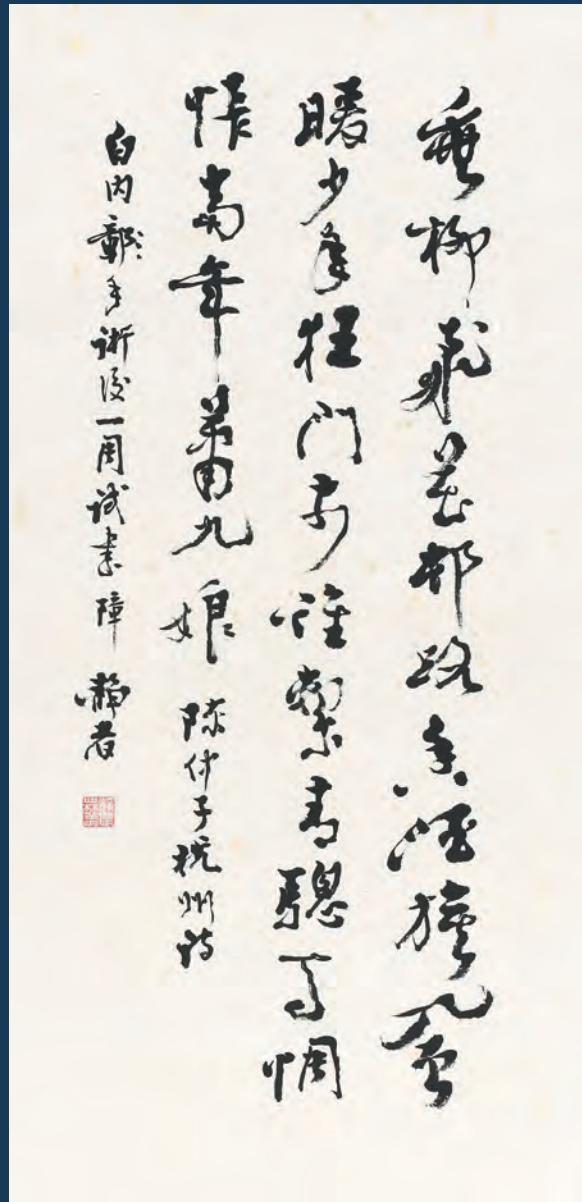 垂柳飛花邨路香酒旗風
暖少年狂門前誰繫青驄馬惆
悵當年蕭九娘 陳仲子杭州詩
白内鄣手術後一周試書障 靜者